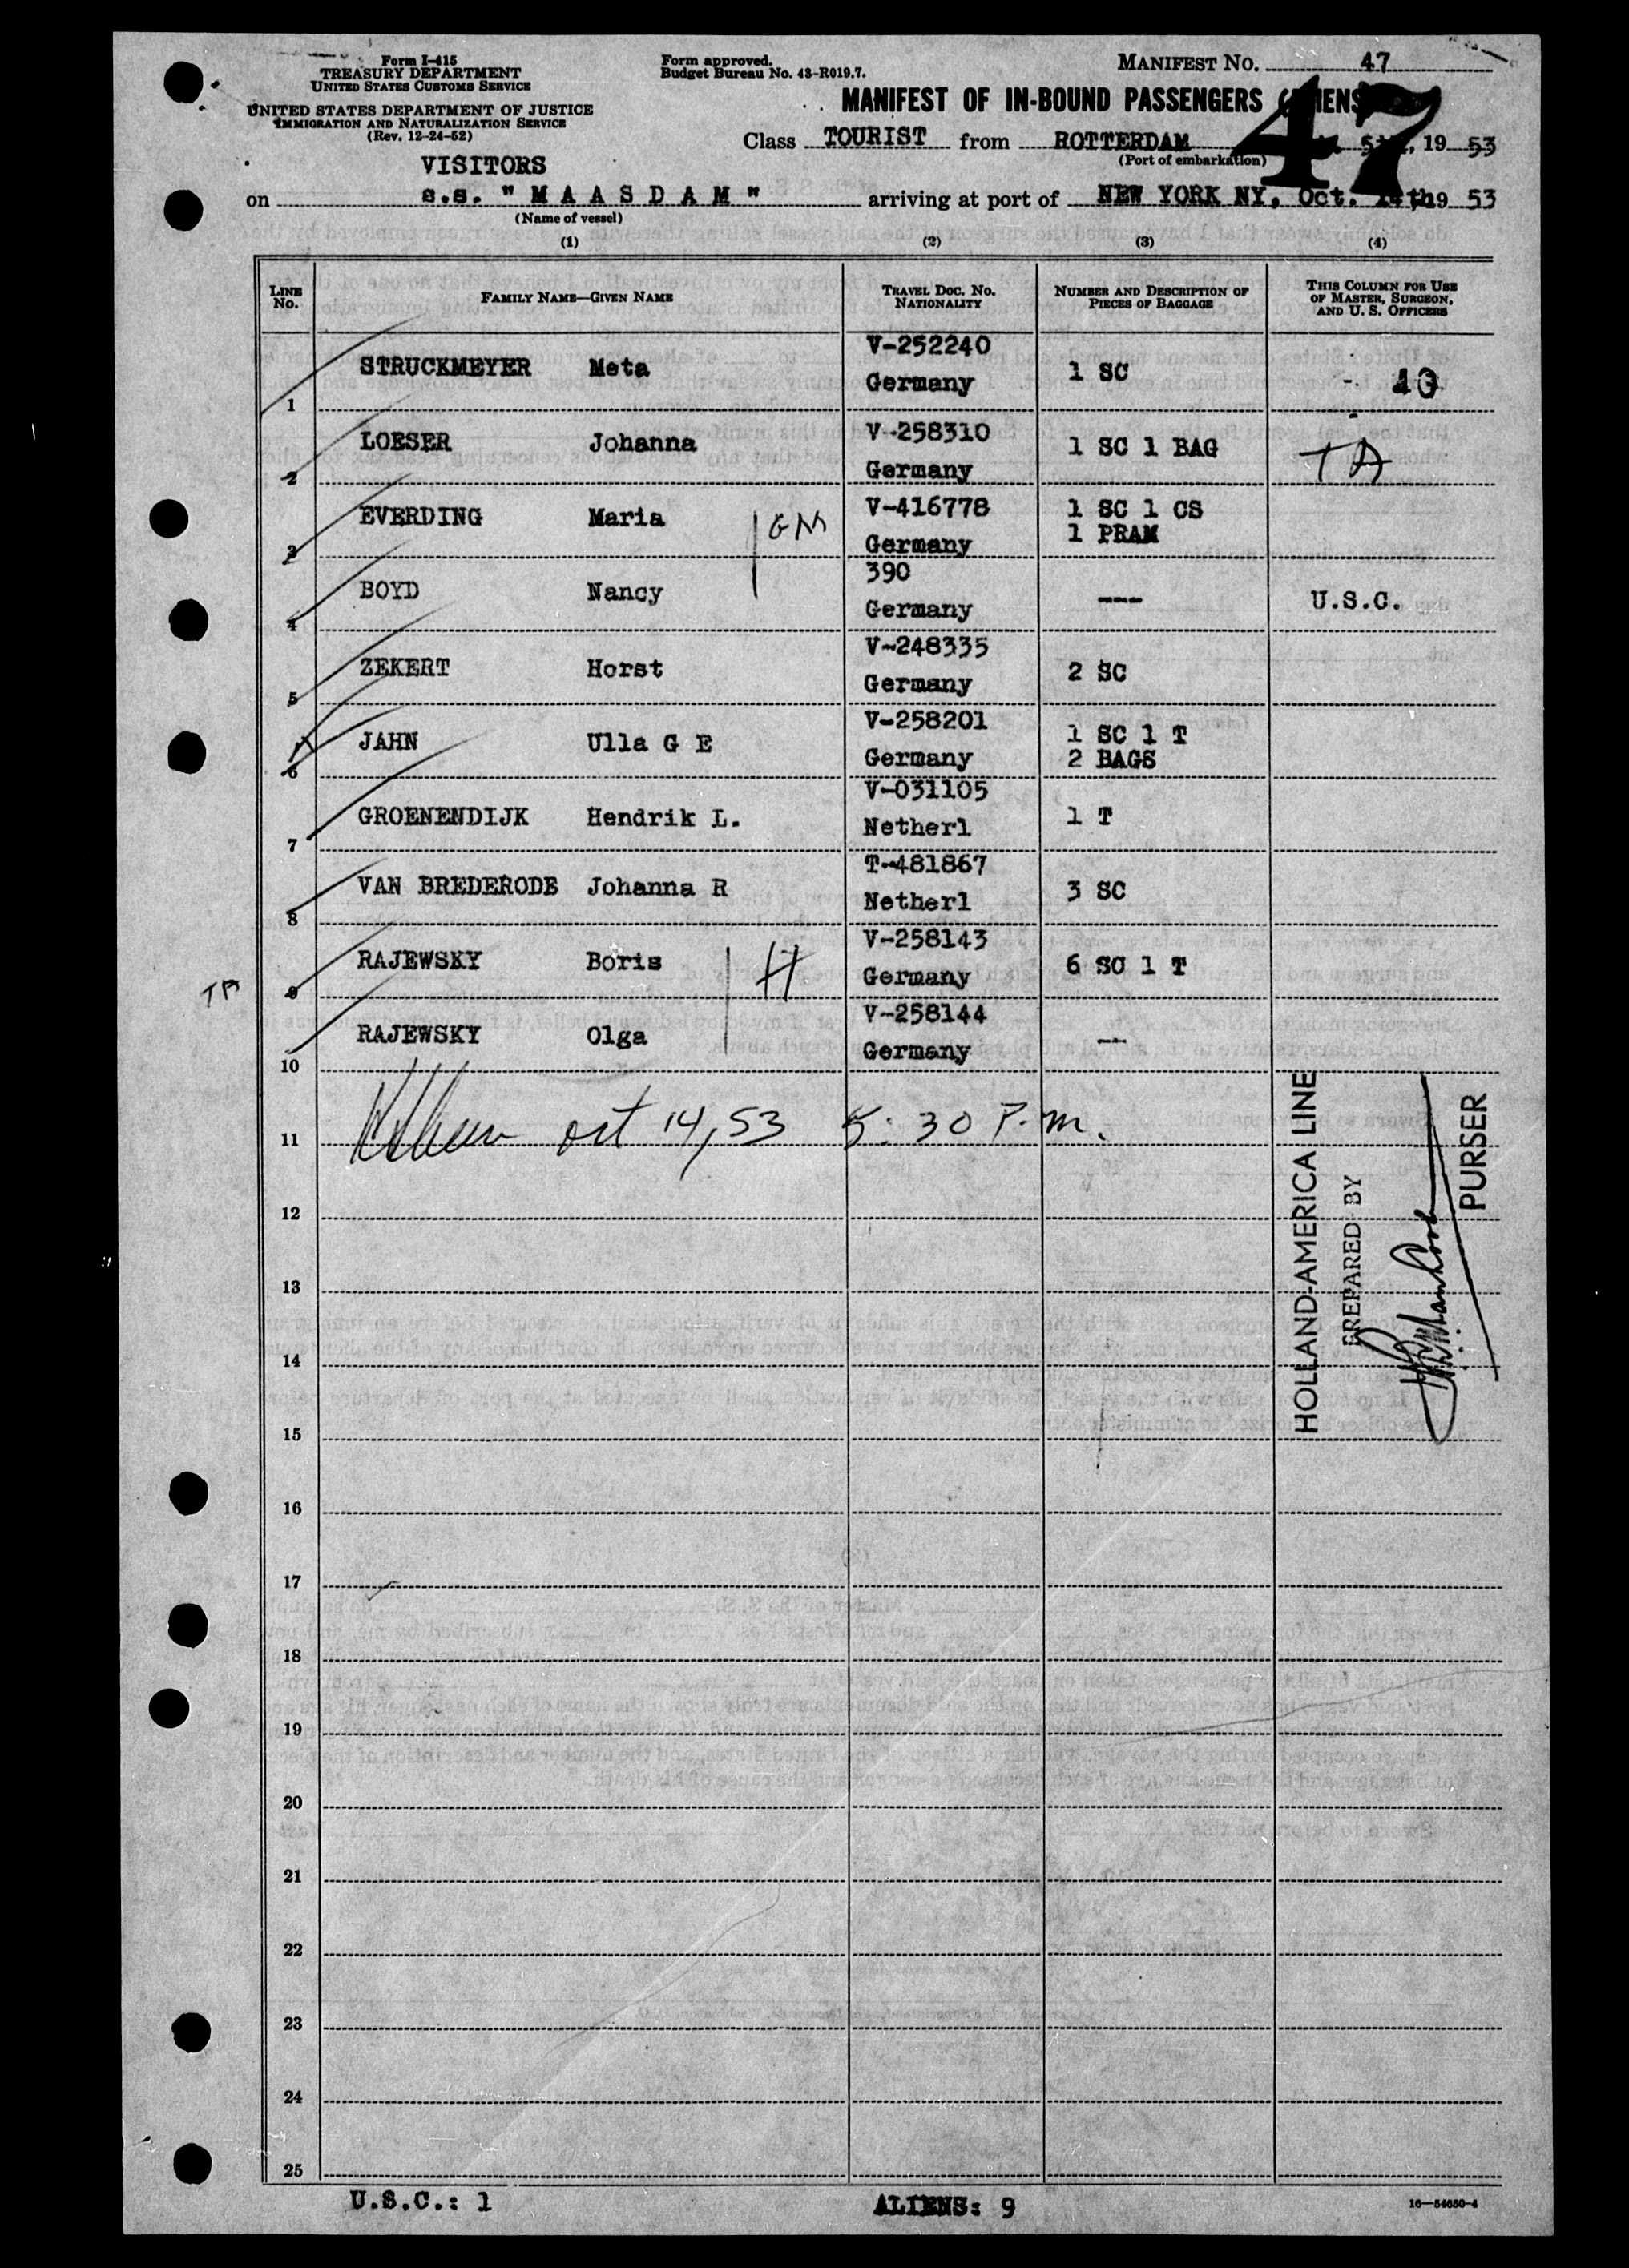 Form I-415
TREASURY DEPARTMENT
UNITED STATES CUSTOMS SERVICE
UNITED STATES DEPARTMENT OF JUSTICE
IMMIGRATION AND NATURALIZATION SERVICE
(Rev. 12-24-52)
Form approved.
Budget Bureau No. 43-R019.7.
MANIFEST NO. 47
47
MANIFEST OF IN-BOUND PASSENGERS
Class TOURIST from ROTTERDAM 19 53
(Port of embarkation)
VISITORS
on s.s. "MAASDAM" arriving at port of NEW YORK NY, Oct. 14th 19 53
(Name of vessel)
(1) (2) (3) (4)
LINE No. FAMILY NAME—GIVEN NAME TRAVEL DOC. NO. NATIONALITY NUMBER AND DESCRIPTION OF PIECES OF BAGGAGE THIS COLUMN FOR USE OF MASTER, SURGEON, AND U. S. OFFICERS
1 STRUCKMEYER Meta V-252240 Germany 1 SC
2 LOESER Johanna V-258310 Germany 1 SC 1 BAG TA
3 EVERDING Maria GM V-416778 Germany 1 SC 1 CS 1 PRAM
4 BOYD Nancy 390 Germany --- U.S.C.
5 ZEKERT Horst V-248335 Germany 2 SC
6 JAHN Ulla G E V-258201 Germany 1 SC 1 T 2 BAGS
7 GROENENDIJK Hendrik L. V-031105 Netherl 1 T
8 VAN BREDERODE Johanna R T-481867 Netherl 3 SC
9 RAJEWSKY Boris H V-258143 Germany 6 SC 1 T
10 RAJEWSKY Olga V-258144 Germany --
11 oct 14, 53 5:30 P.m.
12
13
14
15
16
17
18
19
20
21
22
23
24
25
HOLLAND-AMERICA LINE
PREPARED BY
PURSER
U.S.C.: 1 ALIENS: 9
16—54650-4